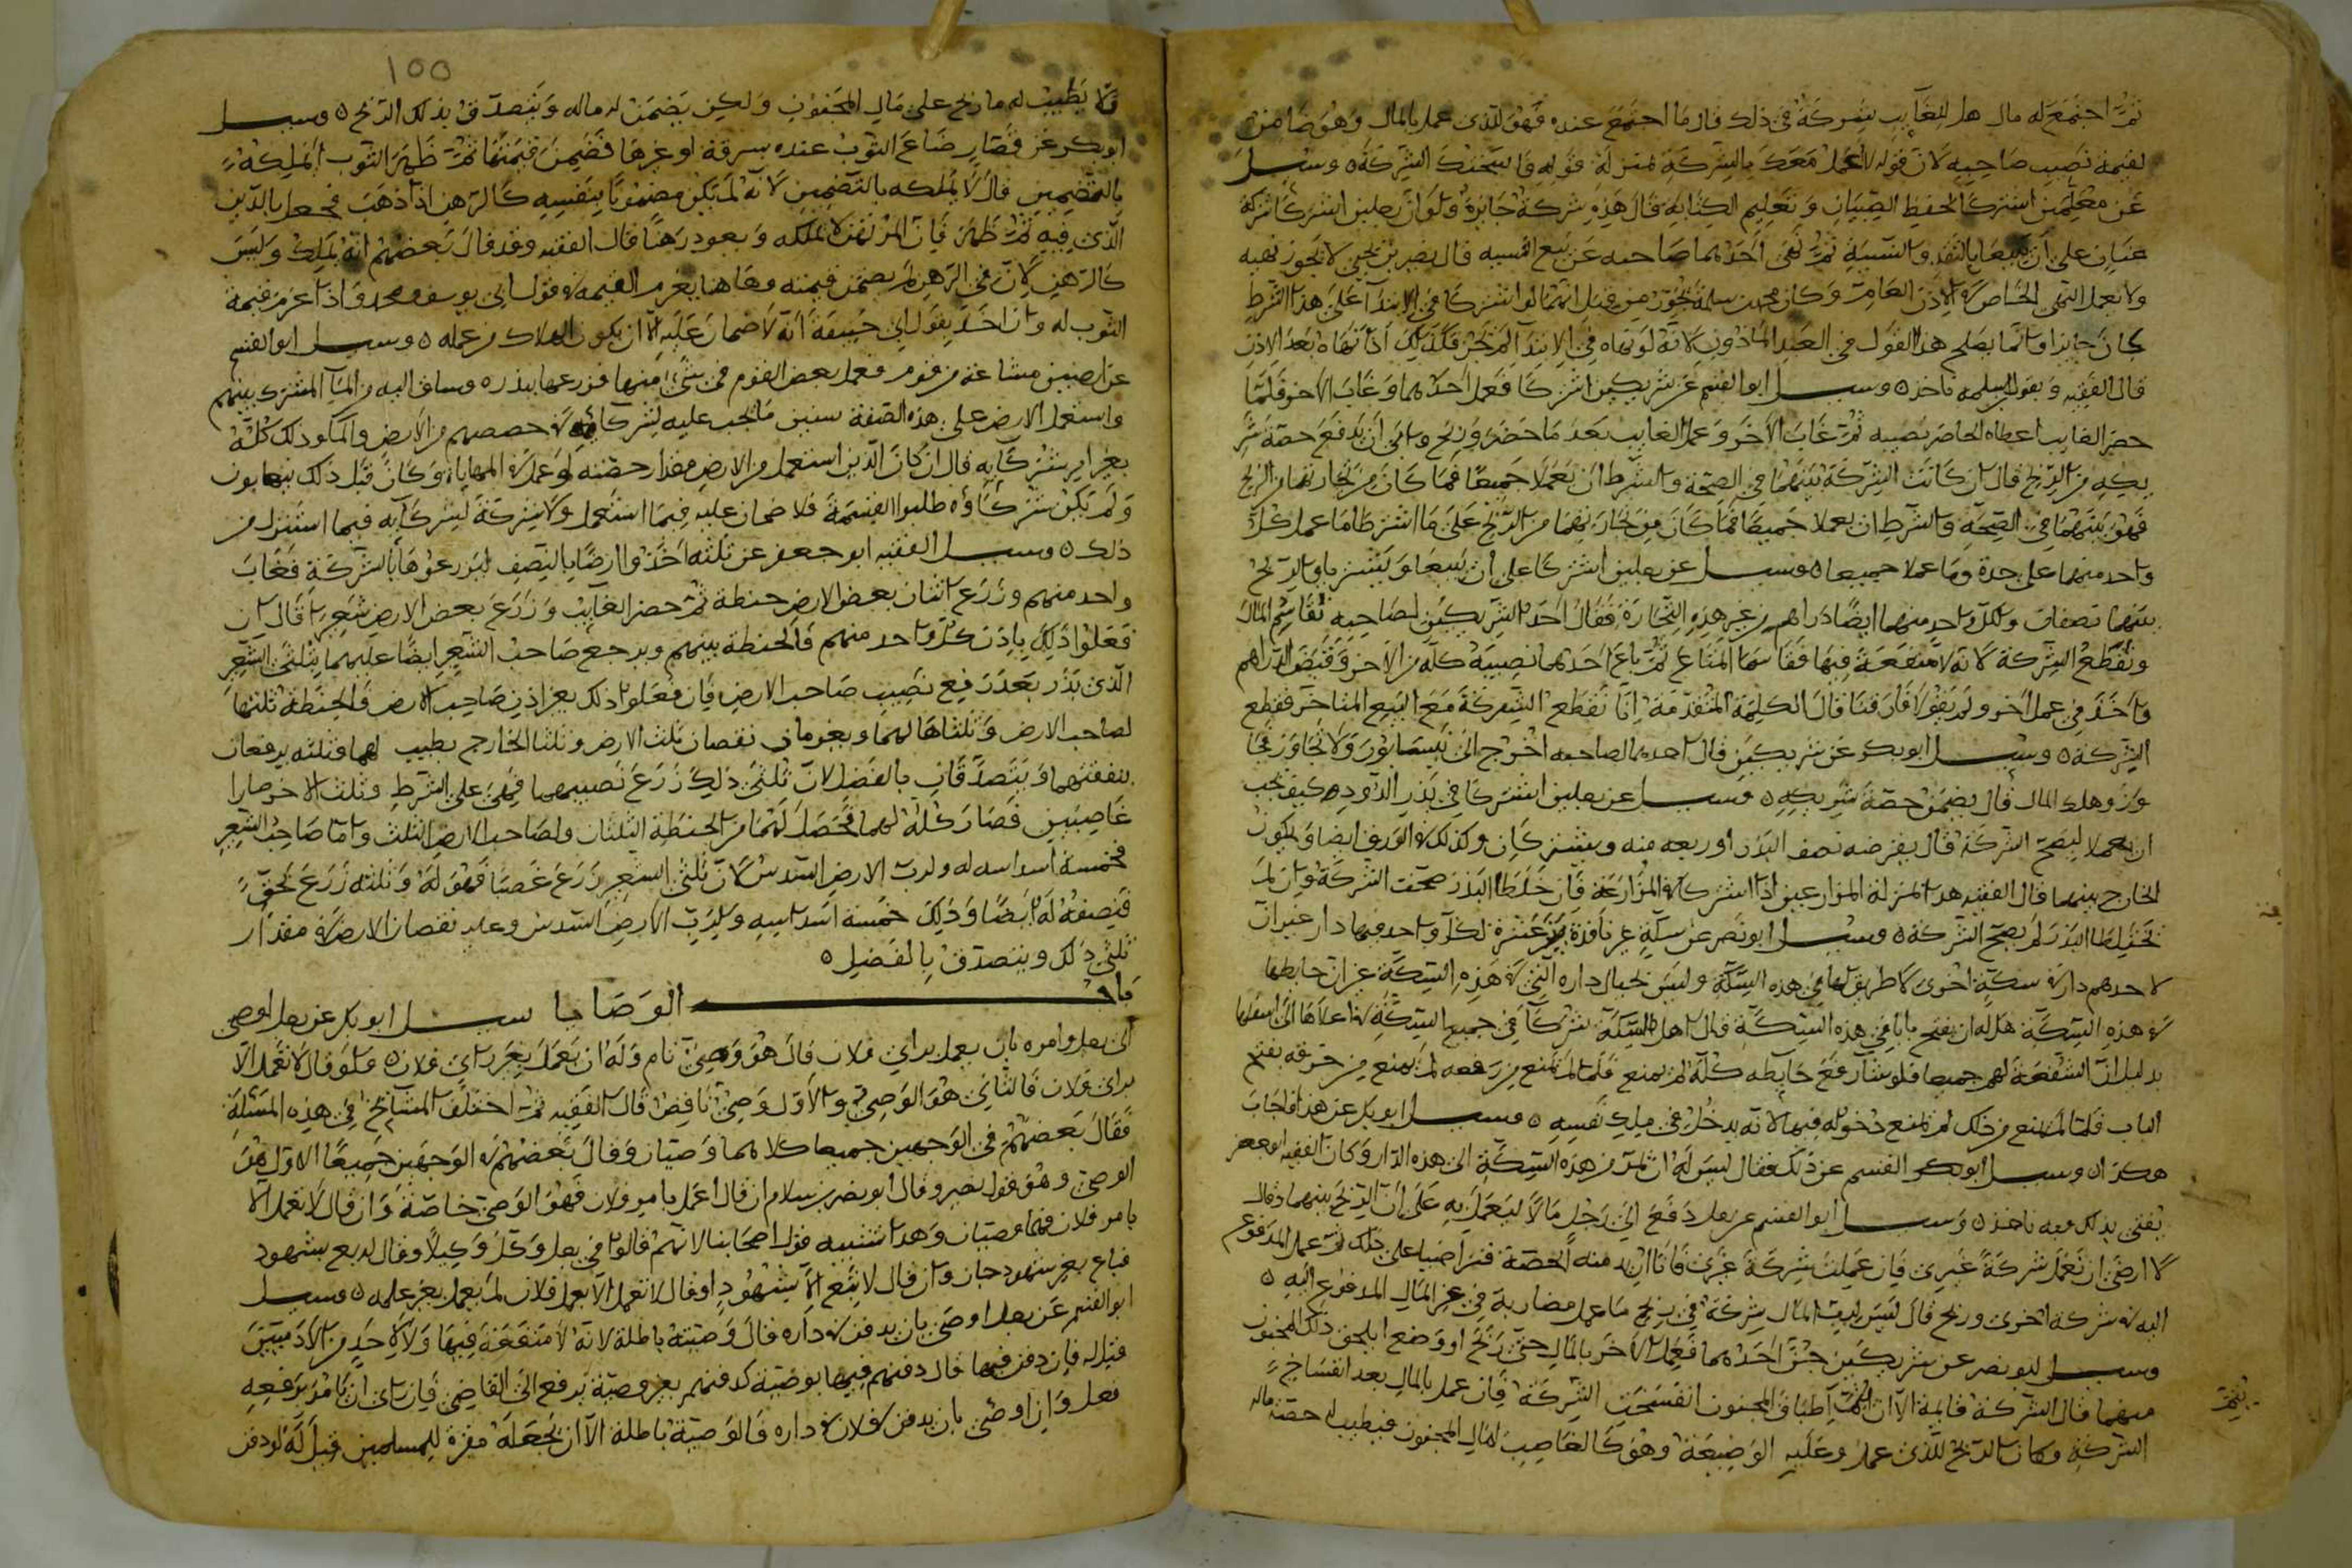 ثم اجتمع له مال هل للغايب شركة في ذلك قال ما اجتمع عنده فهو للذي عمل بالمال وهو ضامن
لقيمة نصيب صاحبه لان قوله اعمل معك بالشركة بمنزلة قوله فاسختك الشركة ٥ وسئل
عن معلمين اشتركا لحفظ الصبيان وتعليم الكتابة قال هذه شركة جايزة ولو ان رجلين اشتركا شركة
عنان على ان يبيعا بالنقد والنسية ثم نهى احدهما صاحبه عن بيع النسيه قال نصير بن يحيى لا يجوز نهيه
ولا يعمل النهي الخاص في الاذن العام وكان محمد بن سلمة يجوز من قبل انهما لو اشتركا في الابتدا على هذا الشرط
كان جايزا وانما يصلح هذا القول في العبد الماذون لانه لو نهاه في الابتدا لم يجز فكذلك اذا نهاه بعد الاذن
قال الفقيه وبقول ابن سلمه ناخذ ٥ وسئل ابو القسم عن شريكين اشتركا فعمل احدهما وغاب الاخر فلما
حضر الغايب اعطاه الحاضر نصيبه ثم غاب الاخر وعمل الغايب بعد ما حضر وربح وابى ان يدفع حصة شر
يكه من الربح قال ان كانت الشركة بينهما في الصحة والشرط ان يعملا جميعا فما كان من تجارتهما من الربح
فهو بينهما في الصحة والشرط ان يعملا جميعا فما كان من تجارتهما من الربح على ما اشترطا ما عمل كل
واحد منهما على حدة وما عملا جميعا ٥ وسئل عن رجلين اشتركا على ان يبيعا ويشتريا والربح
بينهما نصفان ولكل واحد منهما ايضا دراهم من غير هذه التجارة فقال احد الشريكين لصاحبه نقاسم المال
ونقطع الشركة لانه لا منفعة فيها فقاسما المتاع ثم باع احدهما نصيبه كله من الاخر وقبض الدراهم
واخذ في عمل اخر ولم يقولا فارقنا قال الكلمة المتقدمة انا نقطع الشركة مع البيع المتاخر فقطع
الشركة ٥ وسئل ابو بكر عن شريكين قال احدهما لصاحبه اخرج الى نيسابور ولا تجاوز فجا
وز وهلك المال قال يضمن حصة شريكه ٥ وسئل عن رجلين اشتركا في بذر الدود كيف يجب
ان يعملا ليصح الشركة قال يقرضه نصف البذر او يبيعه منه ويشتركان وكذلك في الورق ايضا ويكون
الخارج بينهما قال الفقيه هذا بمنزلة المزارعين اذا اشتركا في المزارعة فان خلطا البذر صحت الشركة وان لم
يخلطا البذر لم يصح الشركة ٥ وسئل ابو نصر عن سكة غير نافذة بين عشرة لكل واحد منهم دار غير ان
لاحدهم دارا في سكة اخرى لا طريق لها في هذه السكة وليس بحيال داره التي في هذه السكة غير ان حايطها
في هذه السكة هل له ان يفتح بابا في هذه السكة قال اهل السكة شركا في جميع السكة من اعلاها الى اسفلها
بدليل ان الشفعة لهم جميعا فلو شا رفع حايطه كله لم يمنع فلما لم يمنع من رفعه لم يمنع من خرقه بفتح
الباب فلما لم يمنع من ذلك لم يمنع دخوله فيها لانه يدخل في ملك نفسه ٥ وسئل ابو بكر عن هذا فاجاب
هكذا وسئل ابو القسم عن ذلك فقال ليس له ان يمر من هذه السكة الى هذه الدار وكان الفقيه ابو جعفر
يفتي بذلك وبه ناخذ ٥ وسئل ابو القسم عن رجل دفع الى رجل مالا ليعمل به على ان الربح بينهما وقال
لا ارضى ان تعمل شركة غيري فان عملت شركة غيري فانا اريد منه الحصة فتراضيا على ذلك ثم عمل المدفوع
اليه في شركة اخرى وربح قال ليس لرب المال شركة في ربح ما عمل مضاربة في غير المال المدفوع اليه ٥
وسئل ابو نصر عن شريكين جن احدهما فعمل الاخر بالمال حتى ربح او وضع ايلحق ذلك المجنون
منهما قال الشركة قايمة الا ان يتم اطباق المجنون انفسخت الشركة فان عمل بالمال بعد انفساخ
الشركة وكان الربح للذي عمل وعليه الوضيعة وهو كالغاصب لمال المجنون فيطيب له حصة ماله
١٥٥
فلا يطيب له ما ربح على مال المجنون ولكن يضمن له ماله ويتصدق بذلك الربح ٥ وسئل
ابو بكر عن قصار ضاع الثوب عنده بسرقة او غيرها فضمن قيمتها ثم ظهر الثوب ايملكه
بالتضمين قال لا يملكه بالتضمين لانه لم يكن مضمونا بنفسه كالرهن اذا ذهب فجعل بالدين
الذي فيه ثم ظهر فان المرتهن لا يملكه ويعود رهنا قال الفقيه وقد قال بعضهم انه يملك وليس
كالرهن لان في الرهن لم يضمن قيمته وهاهنا يغرم القيمه في قول ابي يوسف ومحمد واذا غرم قيمة
الثوب له وان اخذ بقول ابي حنيفة انه لا ضمان عليه الا ان يكون الهلاك من عمله ٥ وسئل ابو القسم
عن ارضين مشاعة من قوم فعمل بعض القوم في شيء منها فزرعها ببذره وساق اليه من الماء المشترك بينهم
واستعمل الارض على هذه الصفة سنين ما يجب عليه لشركائه في حصصهم من الارض والماء وذلك كله
بغير امر شركايه قال ان كان الذي استعمل من الارض مقدار حصته لو عمل في المهاياة وكان قبل ذلك يتهايون
ولم يكن شركاؤه طلبوا القسمة فلا ضمان عليه فيما استعمل ولا شركة لشركايه فيما استنزل من
ذلك ٥ وسئل الفقيه ابو جعفر عن ثلثة اخذوا ارضا بالنصف ليزرعوها بالشركة فغاب
واحد منهم وزرع اثنان بعض الارض حنطة ثم حضر الغايب وزرع بعض الارض شعيرا قال ان
فعلوا ذلك باذن كل واحد منهم فالحنطة بينهم ويرجع صاحب الشعير ايضا عليهما بثلثي الشعير
الذي بذر بعد رفع نصيب صاحب الارض فان فعلوا ذلك بغير اذن صاحب الارض فالحنطة ثلثها
لصاحب الارض وثلثاها لهما ويغرمان نقصان ثلث الارض وثلثا الخارج يطيب لهما وثلثه يرفعان
نفقتهما ويتصدقان بالفضل لان ثلثي ذلك زرع نصيبهما فهي على الشرط وثلث الاخر صارا
غاصبين فصار كله لهما فحصل لهما من الحنطة الثلثان ولصاحب الارض الثلث واما صاحب الشعير
فخمسة اسداسه له ولرب الارض السدس لان ثلثي الشعير زرع غصبا فهو له وثلثه زرع بحق
فنصفه له ايضا وذلك خمسة اسداسه ولرب الارض السدس وعليه نقصان الارض في مقدار
ثلثي ذلك ويتصدق بالفضل ٥
باب الوصايا سئل ابو بكر عن رجل اوصى
الى رجل وامره بان يعمل براي فلان قال هو وصي تام وله ان يعمل بغير راي فلان ولو قال لا تعمل الا
براي فلان فالثاني هو الوصي والاول وصي ناقص قال الفقيه ثم اختلف المشايخ في هذه المسئلة
فقال بعضهم في الوجهين جميعا كلاهما وصيان وقال بعضهم في الوجهين جميعا الاول هو
الوصي وهو قول نصير وقال ابو نصر بن سلام ان قال اعمل بامر فلان فهو الوصي خاصة وان قال لا تعمل الا
بامر فلان فهما وصيان وهذا اشبه بقول اصحابنا لانهم قالوا في رجل وكل وكيلا وقال له بع بشهود
فباع بغير شهود جاز وان قال لا تبع الا بشهود او قال لا تعمل الا بعلم فلان لم يعمل بغير علمه ٥ وسئل
ابو القسم عن رجل اوصى بان يدفن في داره قال وصيته باطلة لانه لا منفعة فيها ولا لاحد من الادميين
قيل له فان دفن فيها قال دفنهم فيها بوصية كدفنهم بغير وصية يرفع الى القاضي فان راى ان يامر برفعه
فعل وان اوصى بان يدفن فلان في داره فالوصية باطلة الا ان يجعله مقبرة للمسلمين قيل له لو دفن